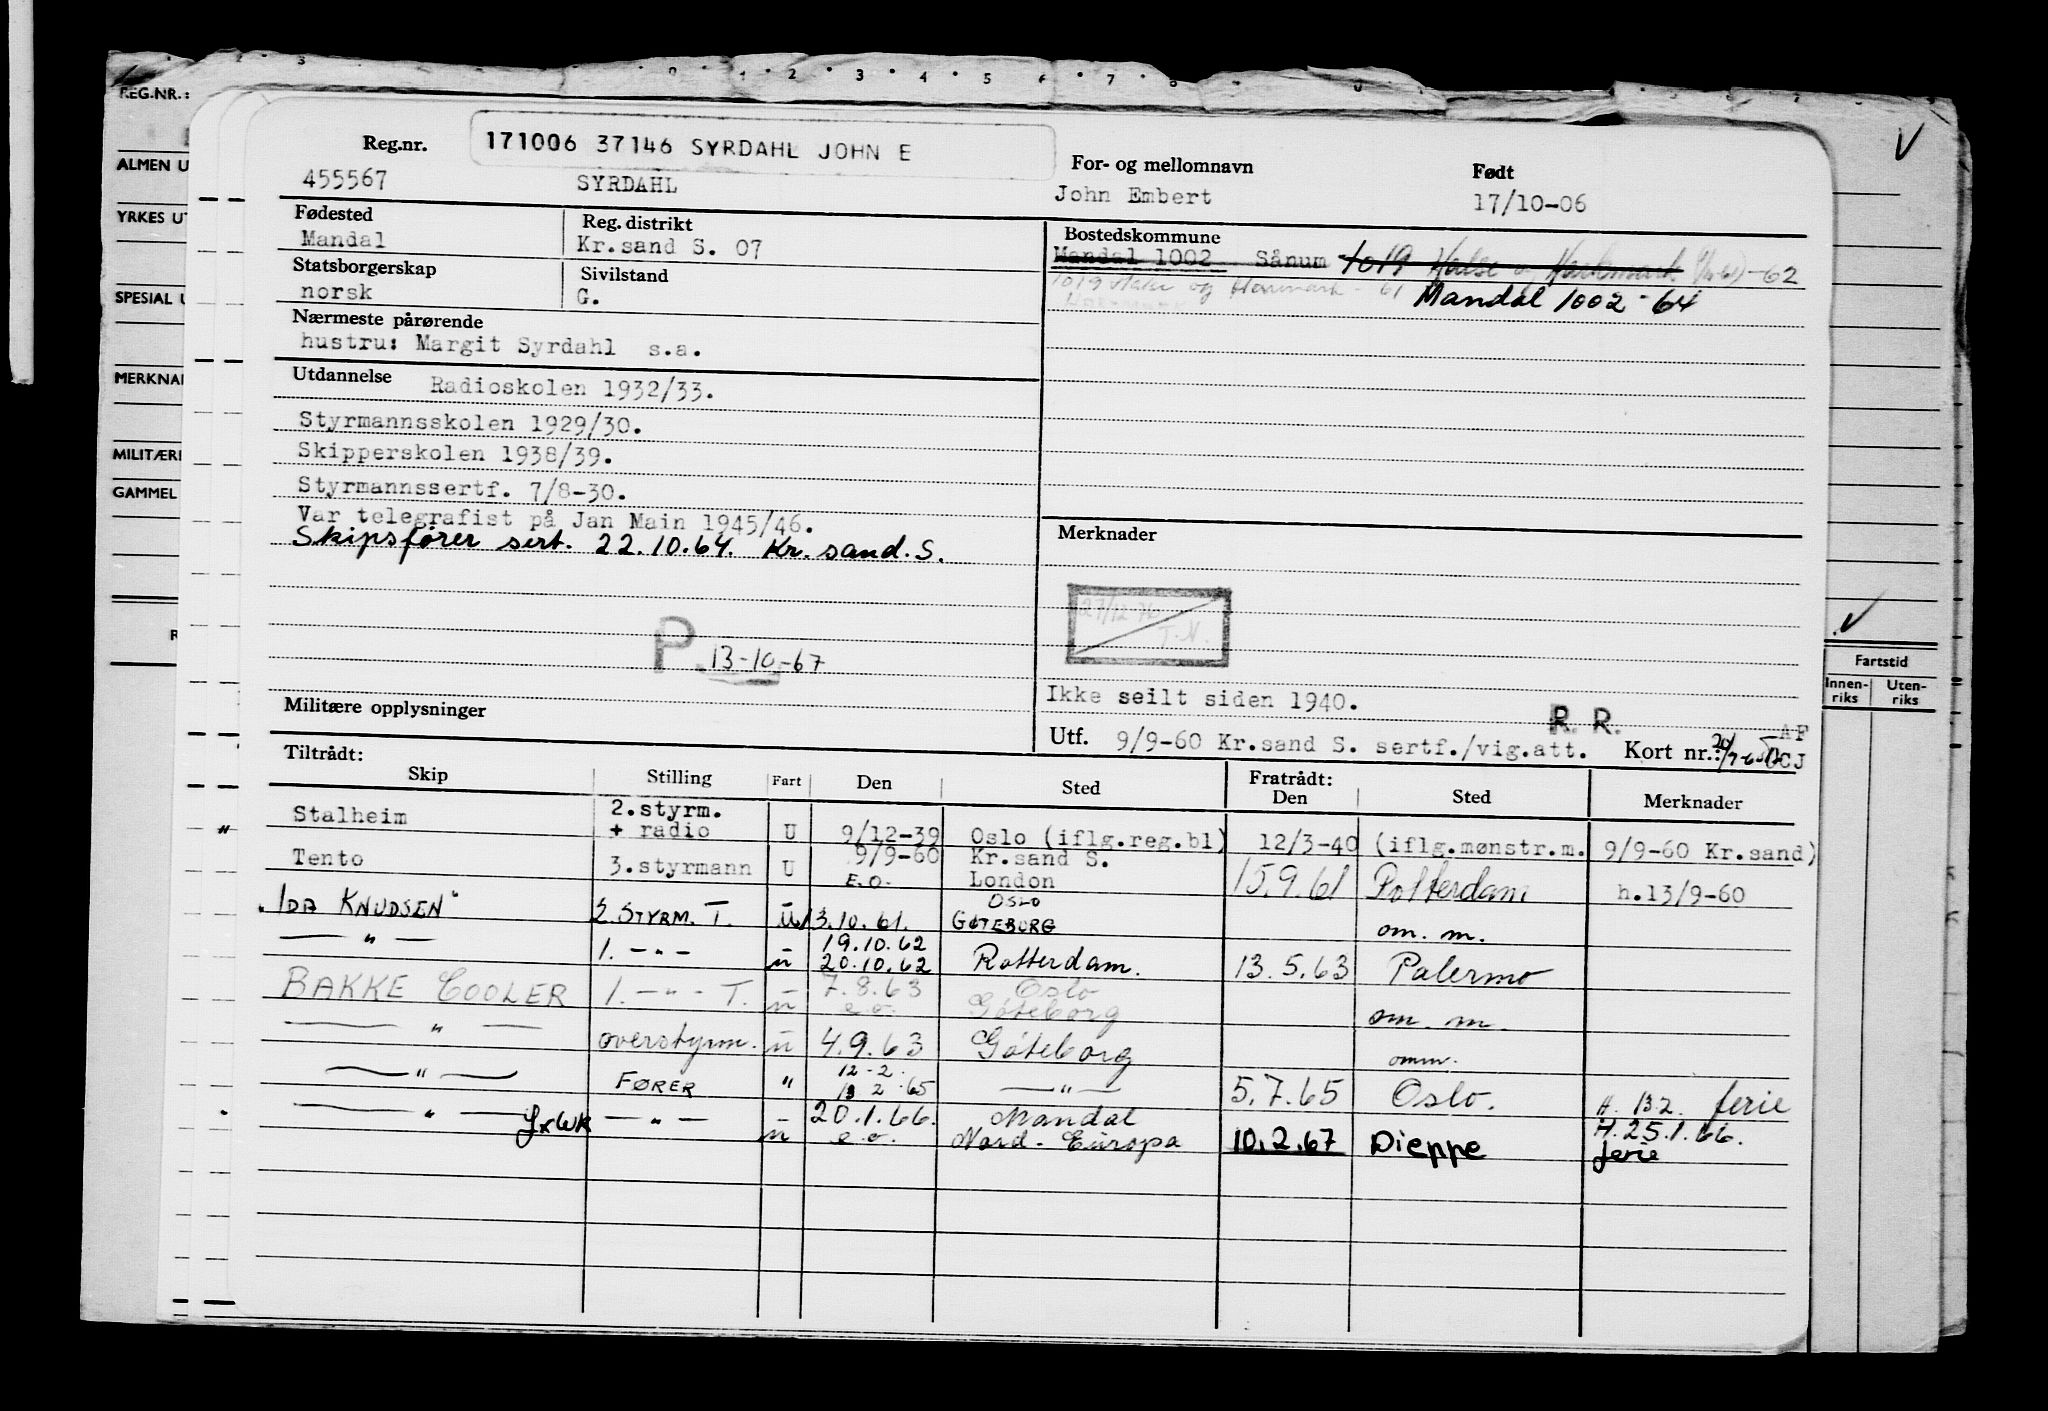 REG.NR.:
ALMEN U
YRKES UT
SPESIAL U
MERKNA
MILITÆR
GAMMEL
Reg.nr.
171006 37146 SYRDAHL JOHN E
For- og mellomnavn
Født
455567
SYRDAHL
John Embert
17/10-06
Fødested
Reg. distrikt
Bostedskommune
Mandal
Kr.sand S. 07
Mandal 1002 Sånum 1019 Halse og Harkmark -62
Statsborgerskap
Sivilstand
norsk
G.
1019 Halse og Harkmark - 61
Mandal 1002 - 64
Nærmeste pårørende
hustru: Margit Syrdahl s.a.
Utdannelse Radioskolen 1932/33.
Styrmannsskolen 1929/30.
Skipperskolen 1938/39.
Styrmannssertf. 7/8-30.
Var telegrafist på Jan Main 1945/46.
Skipsfører sert. 22.10.64. Kr. sand. S.
Merknader
27/12 76
T.N.
P. 13-10-67
Ikke seilt siden 1940.
R. R.
Militære opplysninger
Utf. 9/9-60 Kr.sand S. sertf./vig.att.
Kort nr.:
AF
CJ
Fartstid
Innen-riks
Uten-riks
Tiltrådt:
Skip
Stilling
Fart
Den
Sted
Fratrådt:
Den
Sted
Merknader
Stalheim 2.styrm. + radio U 9/12-39 Oslo (iflg.reg.bl) 12/3-40 (iflg.mønstr.m. 9/9-60 Kr.sand)
Tento 3.styrmann U 9/9-60 E.O. Kr.sand S. London 15.9.61 Rotterdam h.13/9-60
"IDA KNUDSEN" 2. STYRM. T. - U 13.10.61. OSLO GØTEBORG om. m.
— " — 1. - " - - u 19.10.62 20.10.62 Rotterdam. 13.5.63 Palermo
BAKKE COOLER 1. - " - T. - u 7.8.63 e.o. Oslo Göteborg om. m.
— " — overstyrm. - u 4.9.63 Göteborg omm.
— " — FØRER " 12-2. 13 2.65 — " — 5.7.65 Oslo. H. 13.2. ferie
— " — LxWK — " — - u 20.1.66. e.o. Mandal Nord-Europa 10.2.67 Dieppe H.25.1.66. ferie